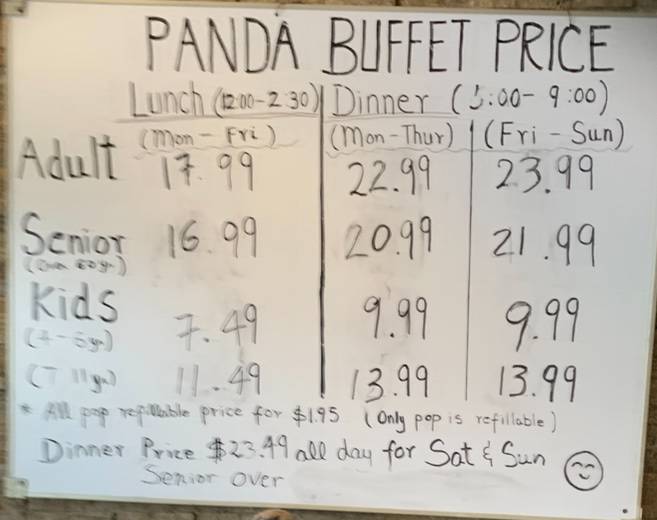 PANDA BUFFET PRICE
Lunch (12:00-2:30) Dinner (5:00-9:00)
(Mon-Fri) (Mon-Thur) (Fri-Sun)
Adult 17.99 22.99 23.99
Senior 16.99 20.99 21.99
Kids 7.49 9.99 9.99
11.49 13.99 13.99
* All pop refillable price for $1.95 (Only pop is refillable)
Dinner Price $23.49 all day for Sat & Sun
Senior over